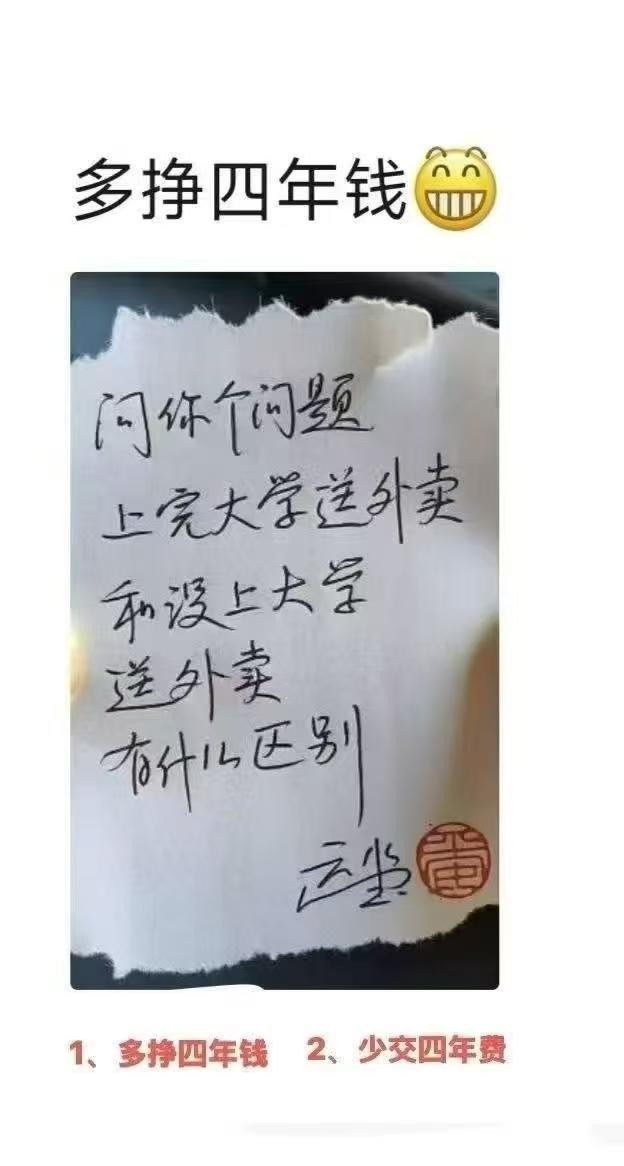 多挣四年钱😁
问你个问题
上完大学送外卖
和没上大学
送外卖
有什么区别
1、多挣四年钱 2、少交四年费